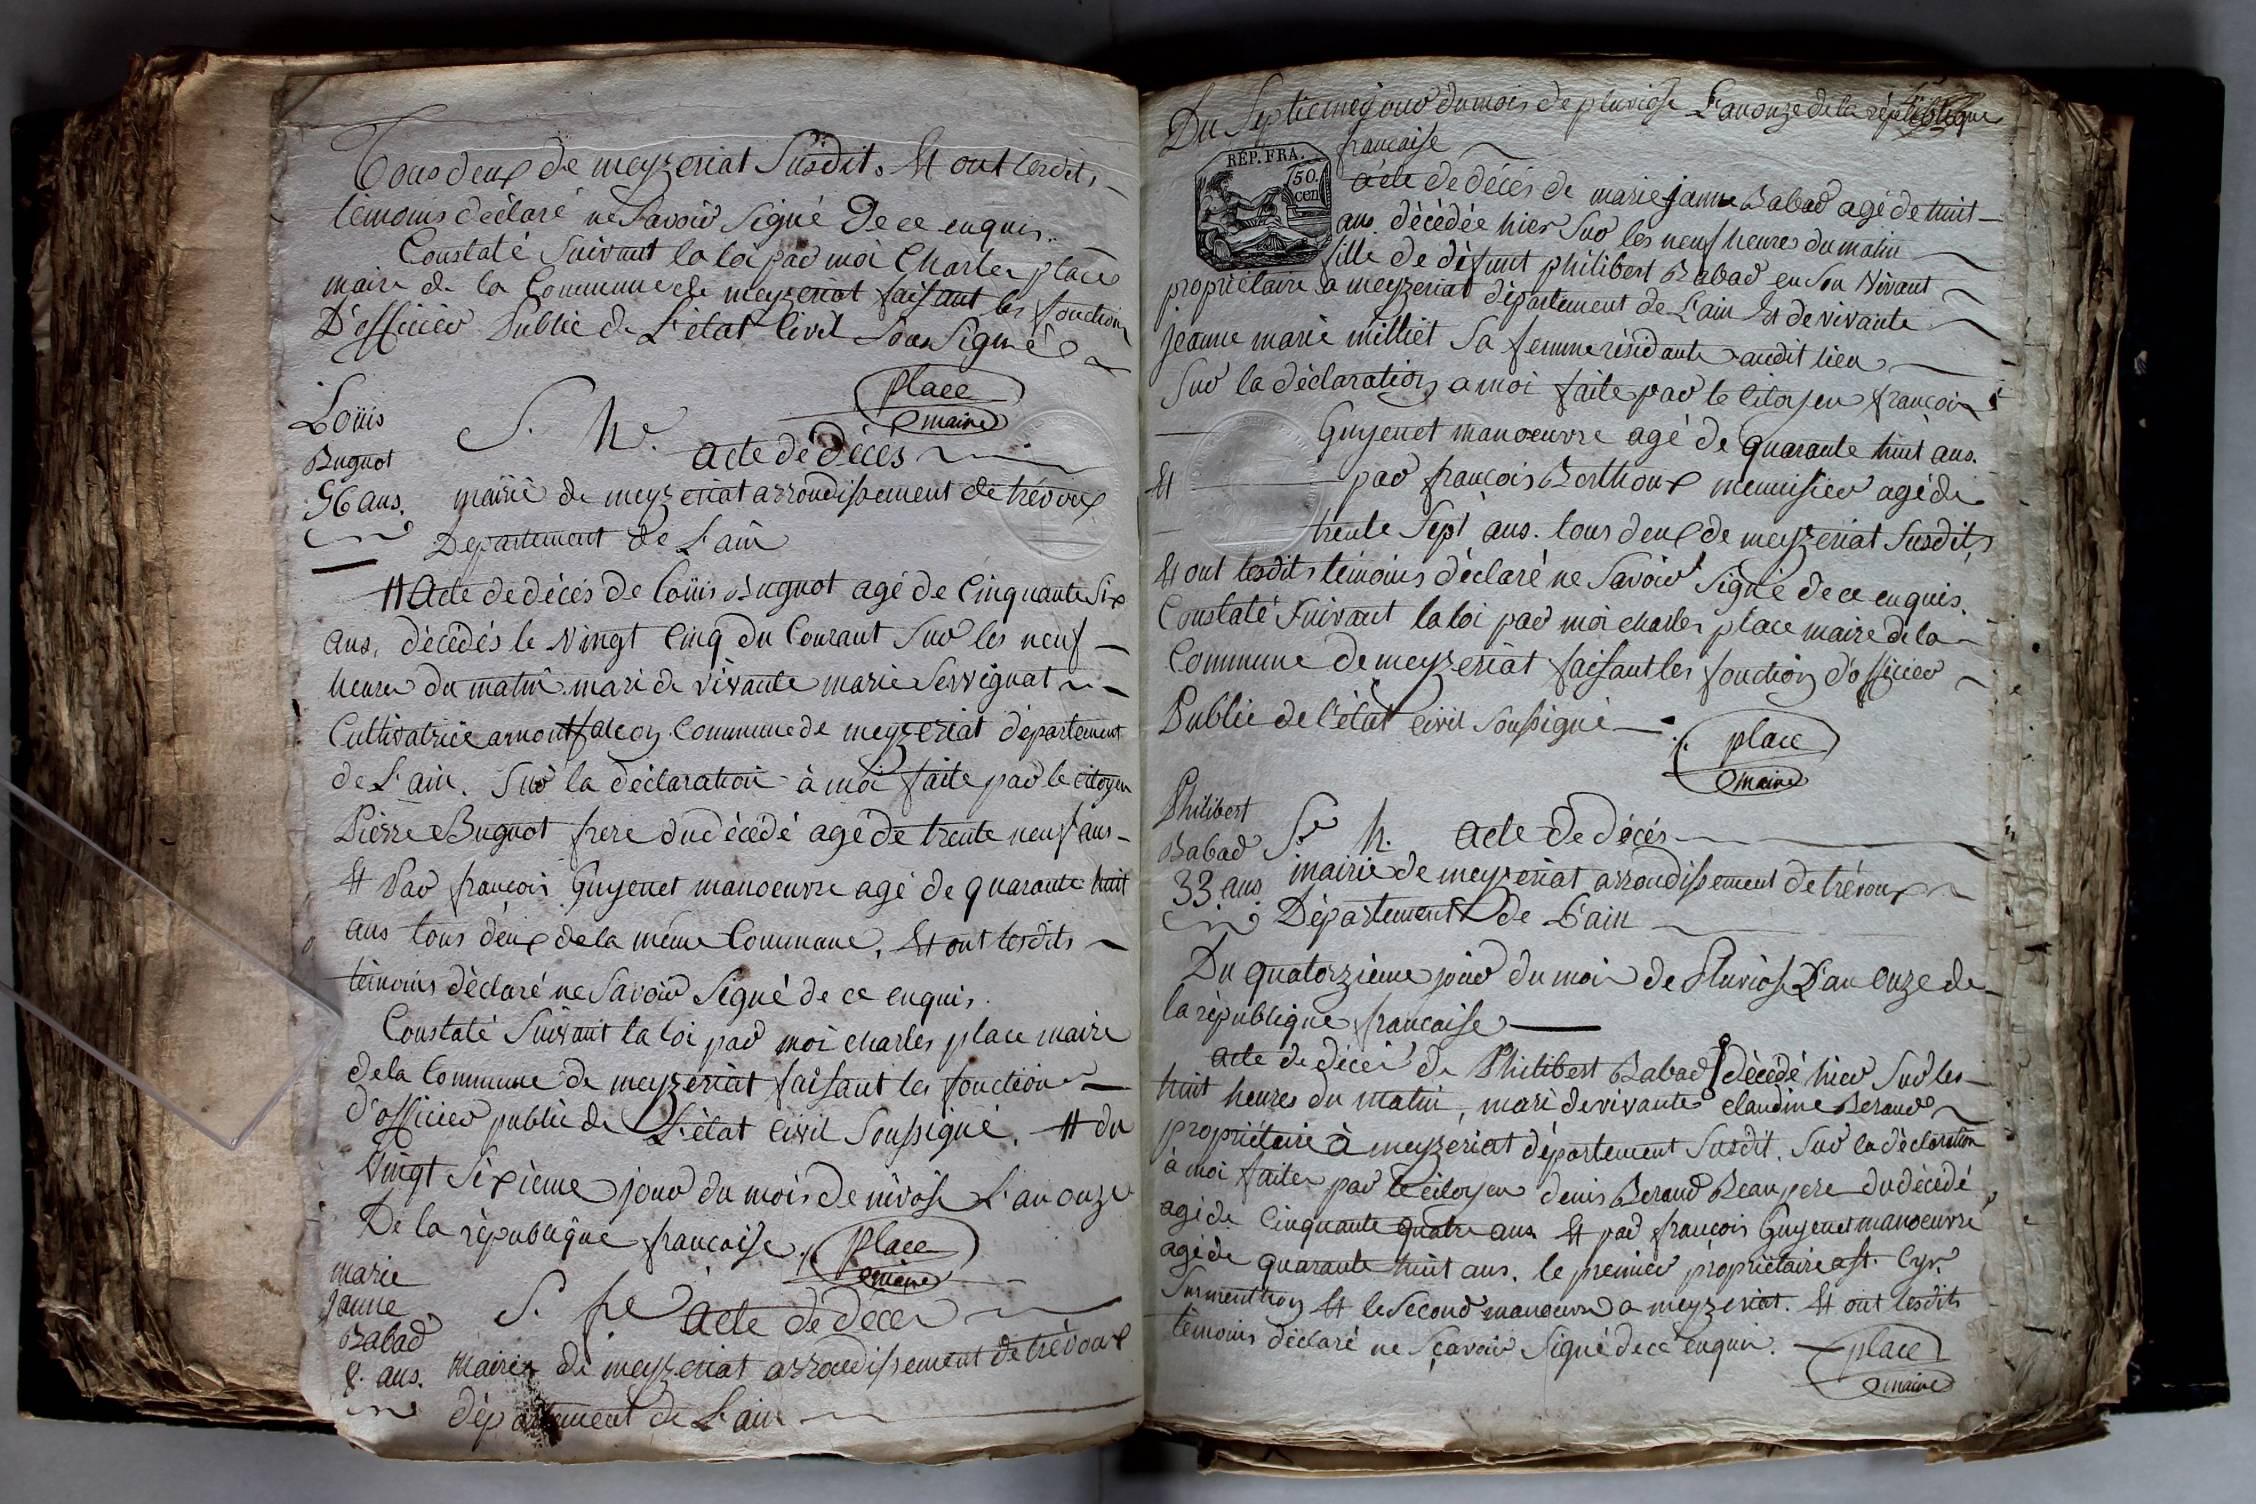 Tous deux de meyzeriat susdits. Et ont lesdits
temoins déclaré ne savoir signé de ce enquis.
Constaté suivant la loi par moi Charles place
maire de la Commune de meyzeriat faisant les fonction
D'officier Public de L'état Civil sous signé
place
maire
Loüis
Bugnot
56 ans.
S. h. acte de décés
mairie de meyzeriat arrondissement de trévoux
Département de L'ain
# Acte de décés de Loüis Bugnot agé de Cinquante six
ans, décédés le vingt cinq du Courant sur les neuf
heures du matin mari de vivante marie Servignat
Cultivatrice a montfalcon Commune de meyzeriat département
de L'ain. Sur la déclaration à moi faite par le citoyen
Pierre Bugnot frere du décédé agé de trente neuf ans
Et Par françois Guyenet manoeuvre agé de quarante huit
ans tous deux de la même Commune. Et ont lesdits
témoins déclaré ne savoir signé de ce enquis.
Constaté suivant la loi par moi charles place maire
de la Commune de meyzeriat faisant les fonction
d'officier public de L'état Civil soussigné. # du
vingt sixième jour du mois de nivose L'an onze
De la république françoise.
place
maire
marie
janne
Babad
8. ans.
S. fe acte de décés
mairie de meyzeriat arrondissement de trévoux
département de L'ain
Du Septieme jour du mois de pluviose L'an onze de la république
françaisse
RÉP. FRA.
50.
cen
acte de décés de marie janne Babad agé de huit
ans. décédée hier sur les neuf heures du matin
fille de défunt philibert Babad en son vivant
propriétaire a meyzeriat département de L'ain Et de vivante
jeanne marie milliet sa femme résidante audit lieu
Sur la déclaration a moi faite par le citoyen françois
Guyenet manoeuvre agé de quarante huit ans.
Et par françois Berthoux menuisier agé de
trente sept ans. tous deux de meyzeriat susdits
Et ont lesdits témoins déclaré ne savoir signé de ce enquis.
Constaté suivant la loi par moi charles place maire de la
Commune de meyzeriat faisant les fonction d'officier
Public de l'état civil soussigné
place
maire
Philibert
Babad
33. ans
Sr h. acte de décés
mairie de meyzeriat arrondissement de trévoux
Département de L'ain
Du quatorzième jour du mois de Pluviose L'an onze de
la république françaisse
acte de décés de Philibert Babad décédé hier sur les
huit heures du matin, mari de vivante claudine Beraud
propriétaire à meyzériat département susdit. Sur la déclaration
à moi faites par le citoyen denis Beraud Beaupere du décédé
agé de Cinquante quatre ans Et par françois Guyenet manoeuvre
agé de quarante huit ans. le premier propriétaire a st. Cyr.
Surmenthon Et le second manoeuvre a meyzeriat. Et ont lesdits
témoins déclaré ne sçavoir signé de ce enquis.
place
maire